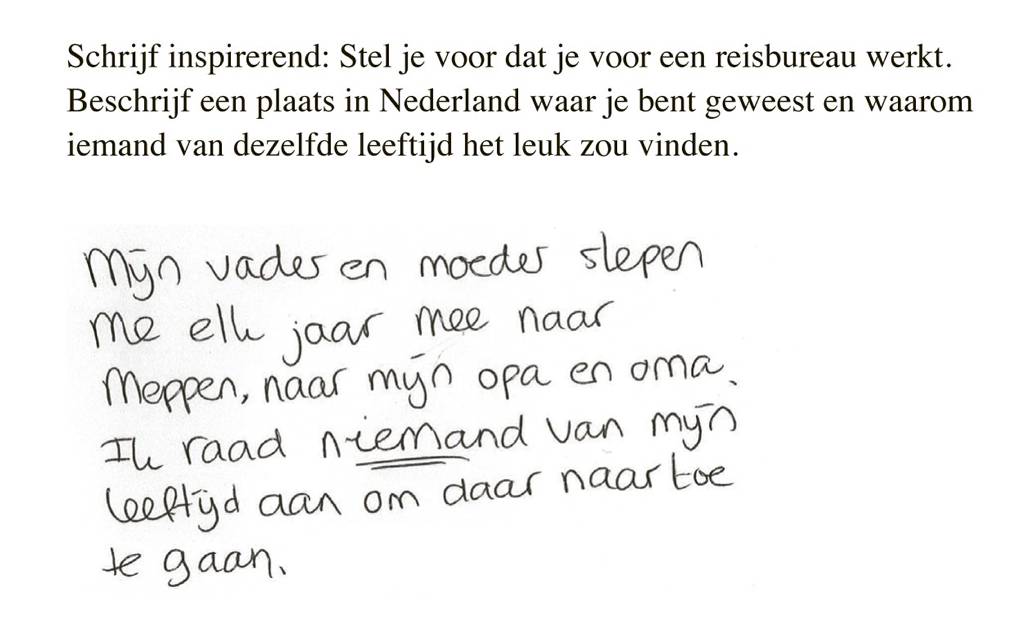 Schrijf inspirerend: Stel je voor dat je voor een reisbureau werkt.
Beschrijf een plaats in Nederland waar je bent geweest en waarom
iemand van dezelfde leeftijd het leuk zou vinden.
Mijn vader en moeder slepen
me elk jaar mee naar
Meppen, naar mijn opa en oma.
Ik raad niemand van mijn
leeftijd aan om daar naar toe
te gaan.